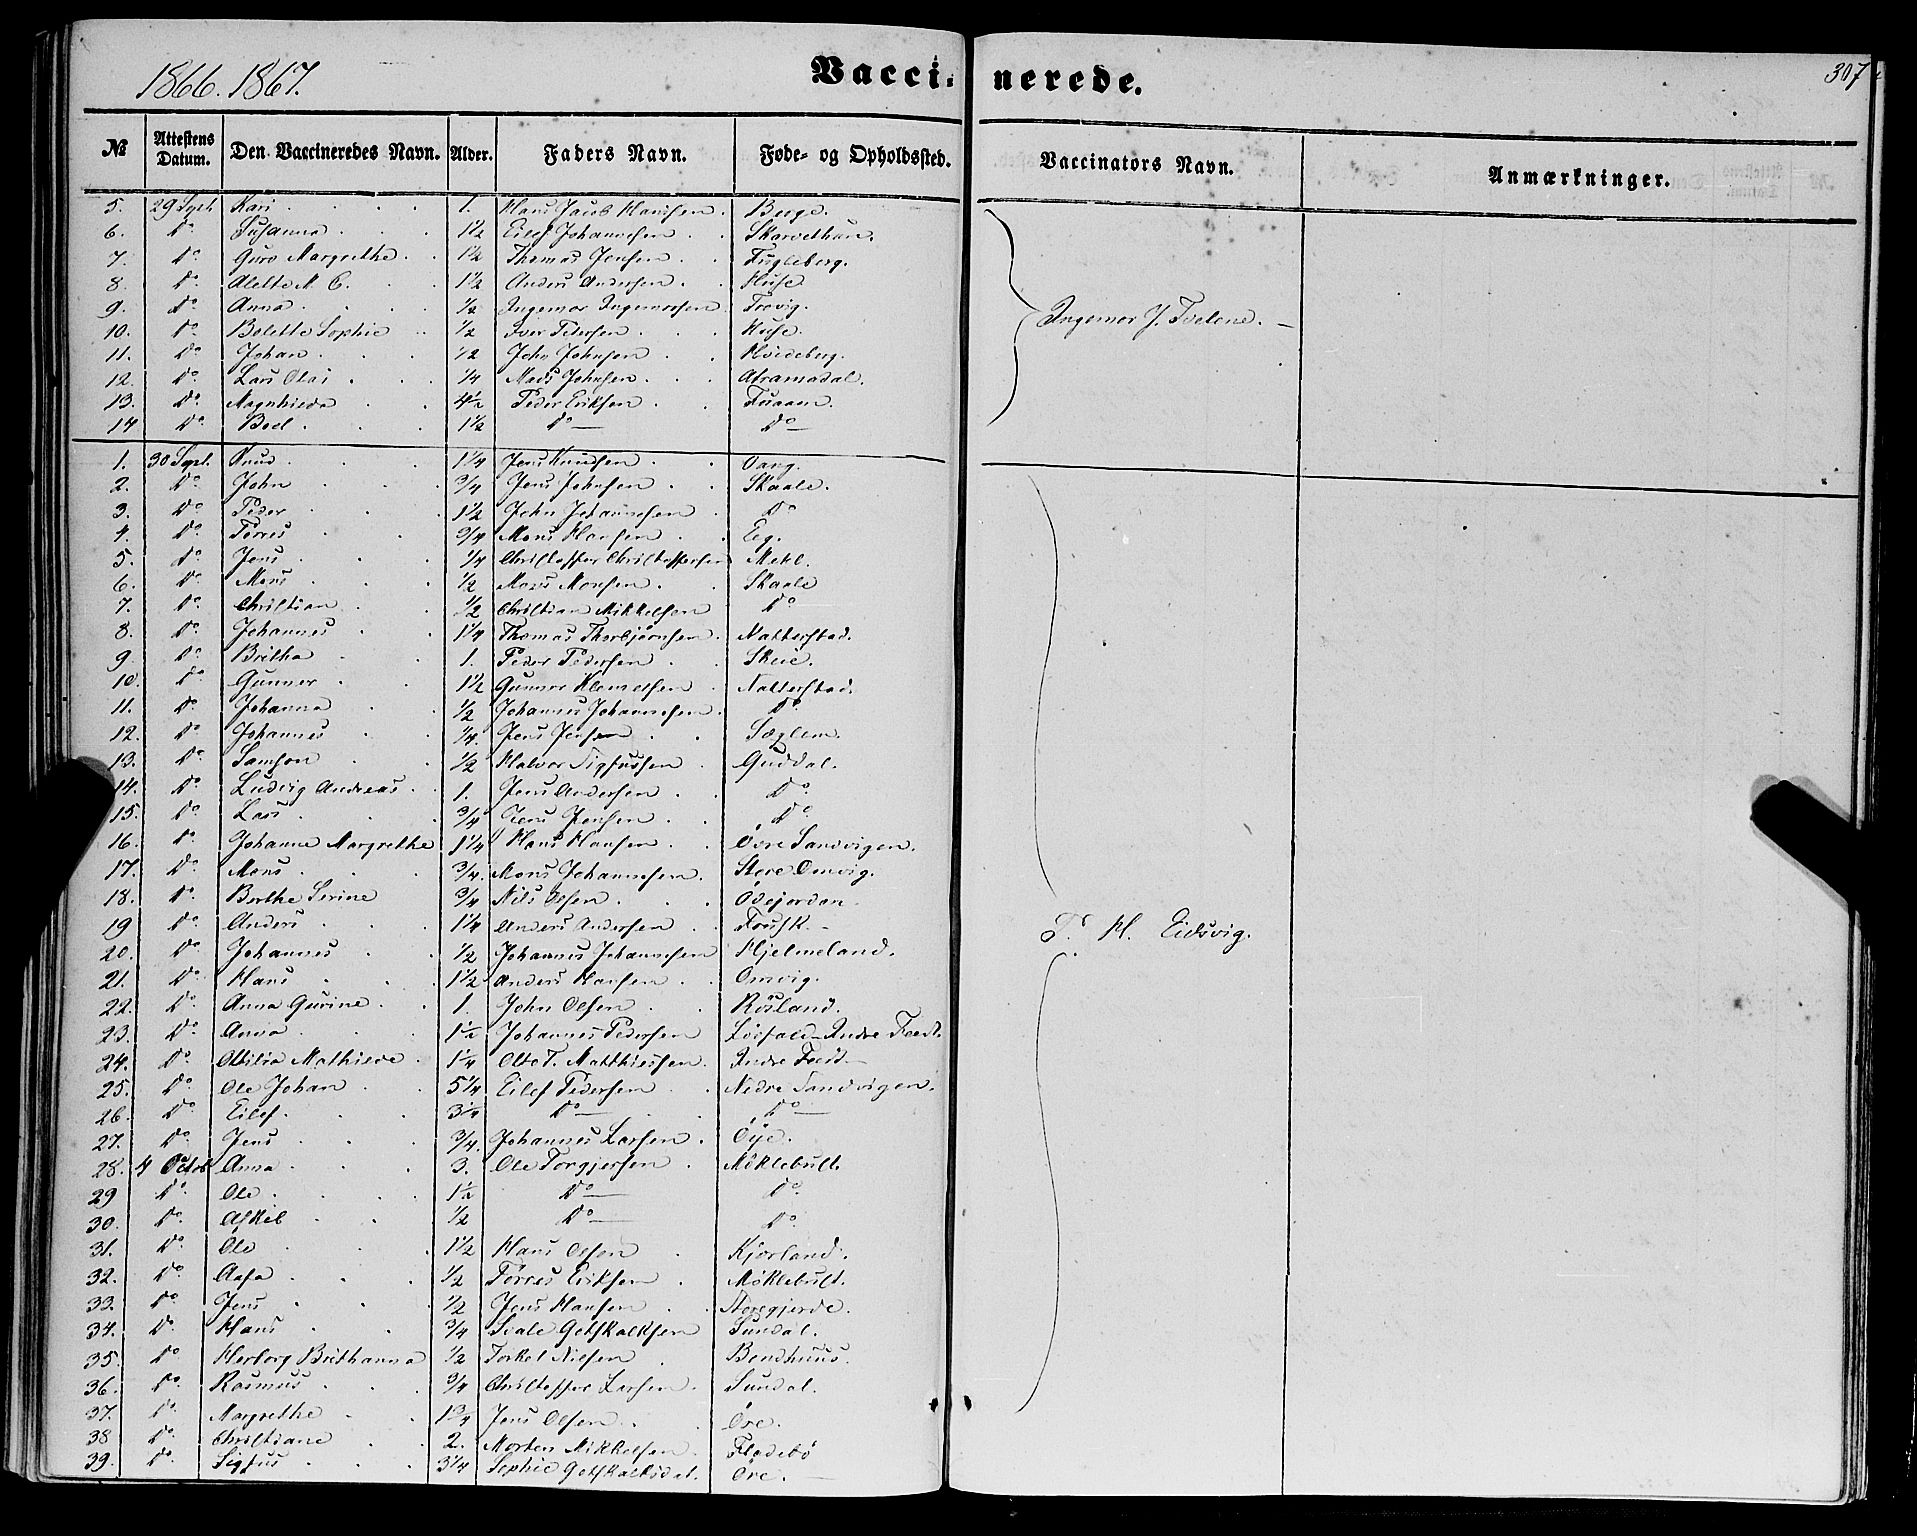 1866. 1867. Vacci- nerede. 307
№ Attestens Datum. Den Vaccineredes Navn. Alder. Faders Navn. Føde- og Opholdssted. Vaccinators Navn. Anmærkninger.
5. 29 Sept. Kari 1. Hans Jacob Hansen Berge.
6. Do Susanna 1½ Eilef Johannesen
7. Do Guro Margrethe 1½ Thomas Jensen Fugleberg.
8. Do Alette M. C. 1½ Anders Andersen Huse
9. Do Anna ½ Ingemor Ingemorsen
10. Do Bolette Sophie ½ Iver Pedersen Huse. Ingemor J. Tvetene.
11. Do Johan ½ John Johnsen Hvideberg.
12. Do Lars Olai ¼ Mads Johnsen
13. Do Magnhilda 4½ Peder Eriksen
14 Do Boel 1½ Do Do
1. 30 Sept. Knud 1¼ Jens Knudsen Vang.
2. Do John ¾ Jens Johnsen Skaale.
3. Do Peder 1½ John Johannesen Do
4. Do Torres ¾ Mons Hansen Eg.
5. Do Jens ¼ Christoffer Christoffersen Mehl.
6. Do Mons ½ Mons Monsen Skaale
7. Do Christian ½ Christian Mikkelsen Do
8. Do Johannes 1¼ Thomas Thorbjørnsen Natterstad.
9. Do Britha 1. Peder Pedersen Skeie.
10. Do Gunner 1½ Gunner Klemetsen Natterstad.
11. Do Johanna ½ Johannes Johannesen Do
12. Do Johannes ¼ Jens Jensen Sæglem.
13. Do Samson ½ Halvor Sigfussen Guddal.
14. Do Ludvig Andreas 1. Jens Andersen Do
15. Do Lars ¾ Jens Jensen Do
16. Do Johanne Margrethe 1¼ Hans Hansen Øvre Sandvigen.
17. Do Mons ¾ Mons Johannesen Store Omvig.
18. Do Berthe Serine ¾ Nils Olsen Ødejordan
19 Do Anders 1¼ Anders Andersen
20. Do Johannes ½ Johannes Johannesen Hjelmeland. T. H. Eidsvig.
21. Do Hans 1½ Anders Hansen Omvig.
22. Do Anna Gurine 1. John Olsen Røsland.
23. Do Anna 1½ Johannes Pedersen
24. Do Mathilde 1¼ T. Matthiessen Indre
25. Do Ole Johan 5¼ Eilef Pedersen Nedre Sandvigen.
26. Do Eilef. Do Do
27. Do Jens ¾ Johannes Larsen Øye.
28. 4 Octob Anna 3. Ole Torgjersen Møklebust.
29 Do Ole 1½ Do Do
30. Do Askil ½ Do Do
31. Do Ole 1½ Hans Olsen Kjærland.
32. Do Aasa ½ Torres Eriksen Møklebust.
33. Do Jens ½ Jens Hansen Noregjerde.
34. Do Hans ¾ Gotskalksen Sundal.
35. Do Herborg Brithanna ½ Torkel Nilsen Bondhuus.
36. Do Rasmus ¾ Christoffer Larsen Sundal.
37. Do Margrethe 1¾ Jens Olsen Øre.
38 Do Christiane 2. Morten Mikkelsen Fladebø
39. Do Sigfus 3¼ Sophie Gotskalksdat. Øre.